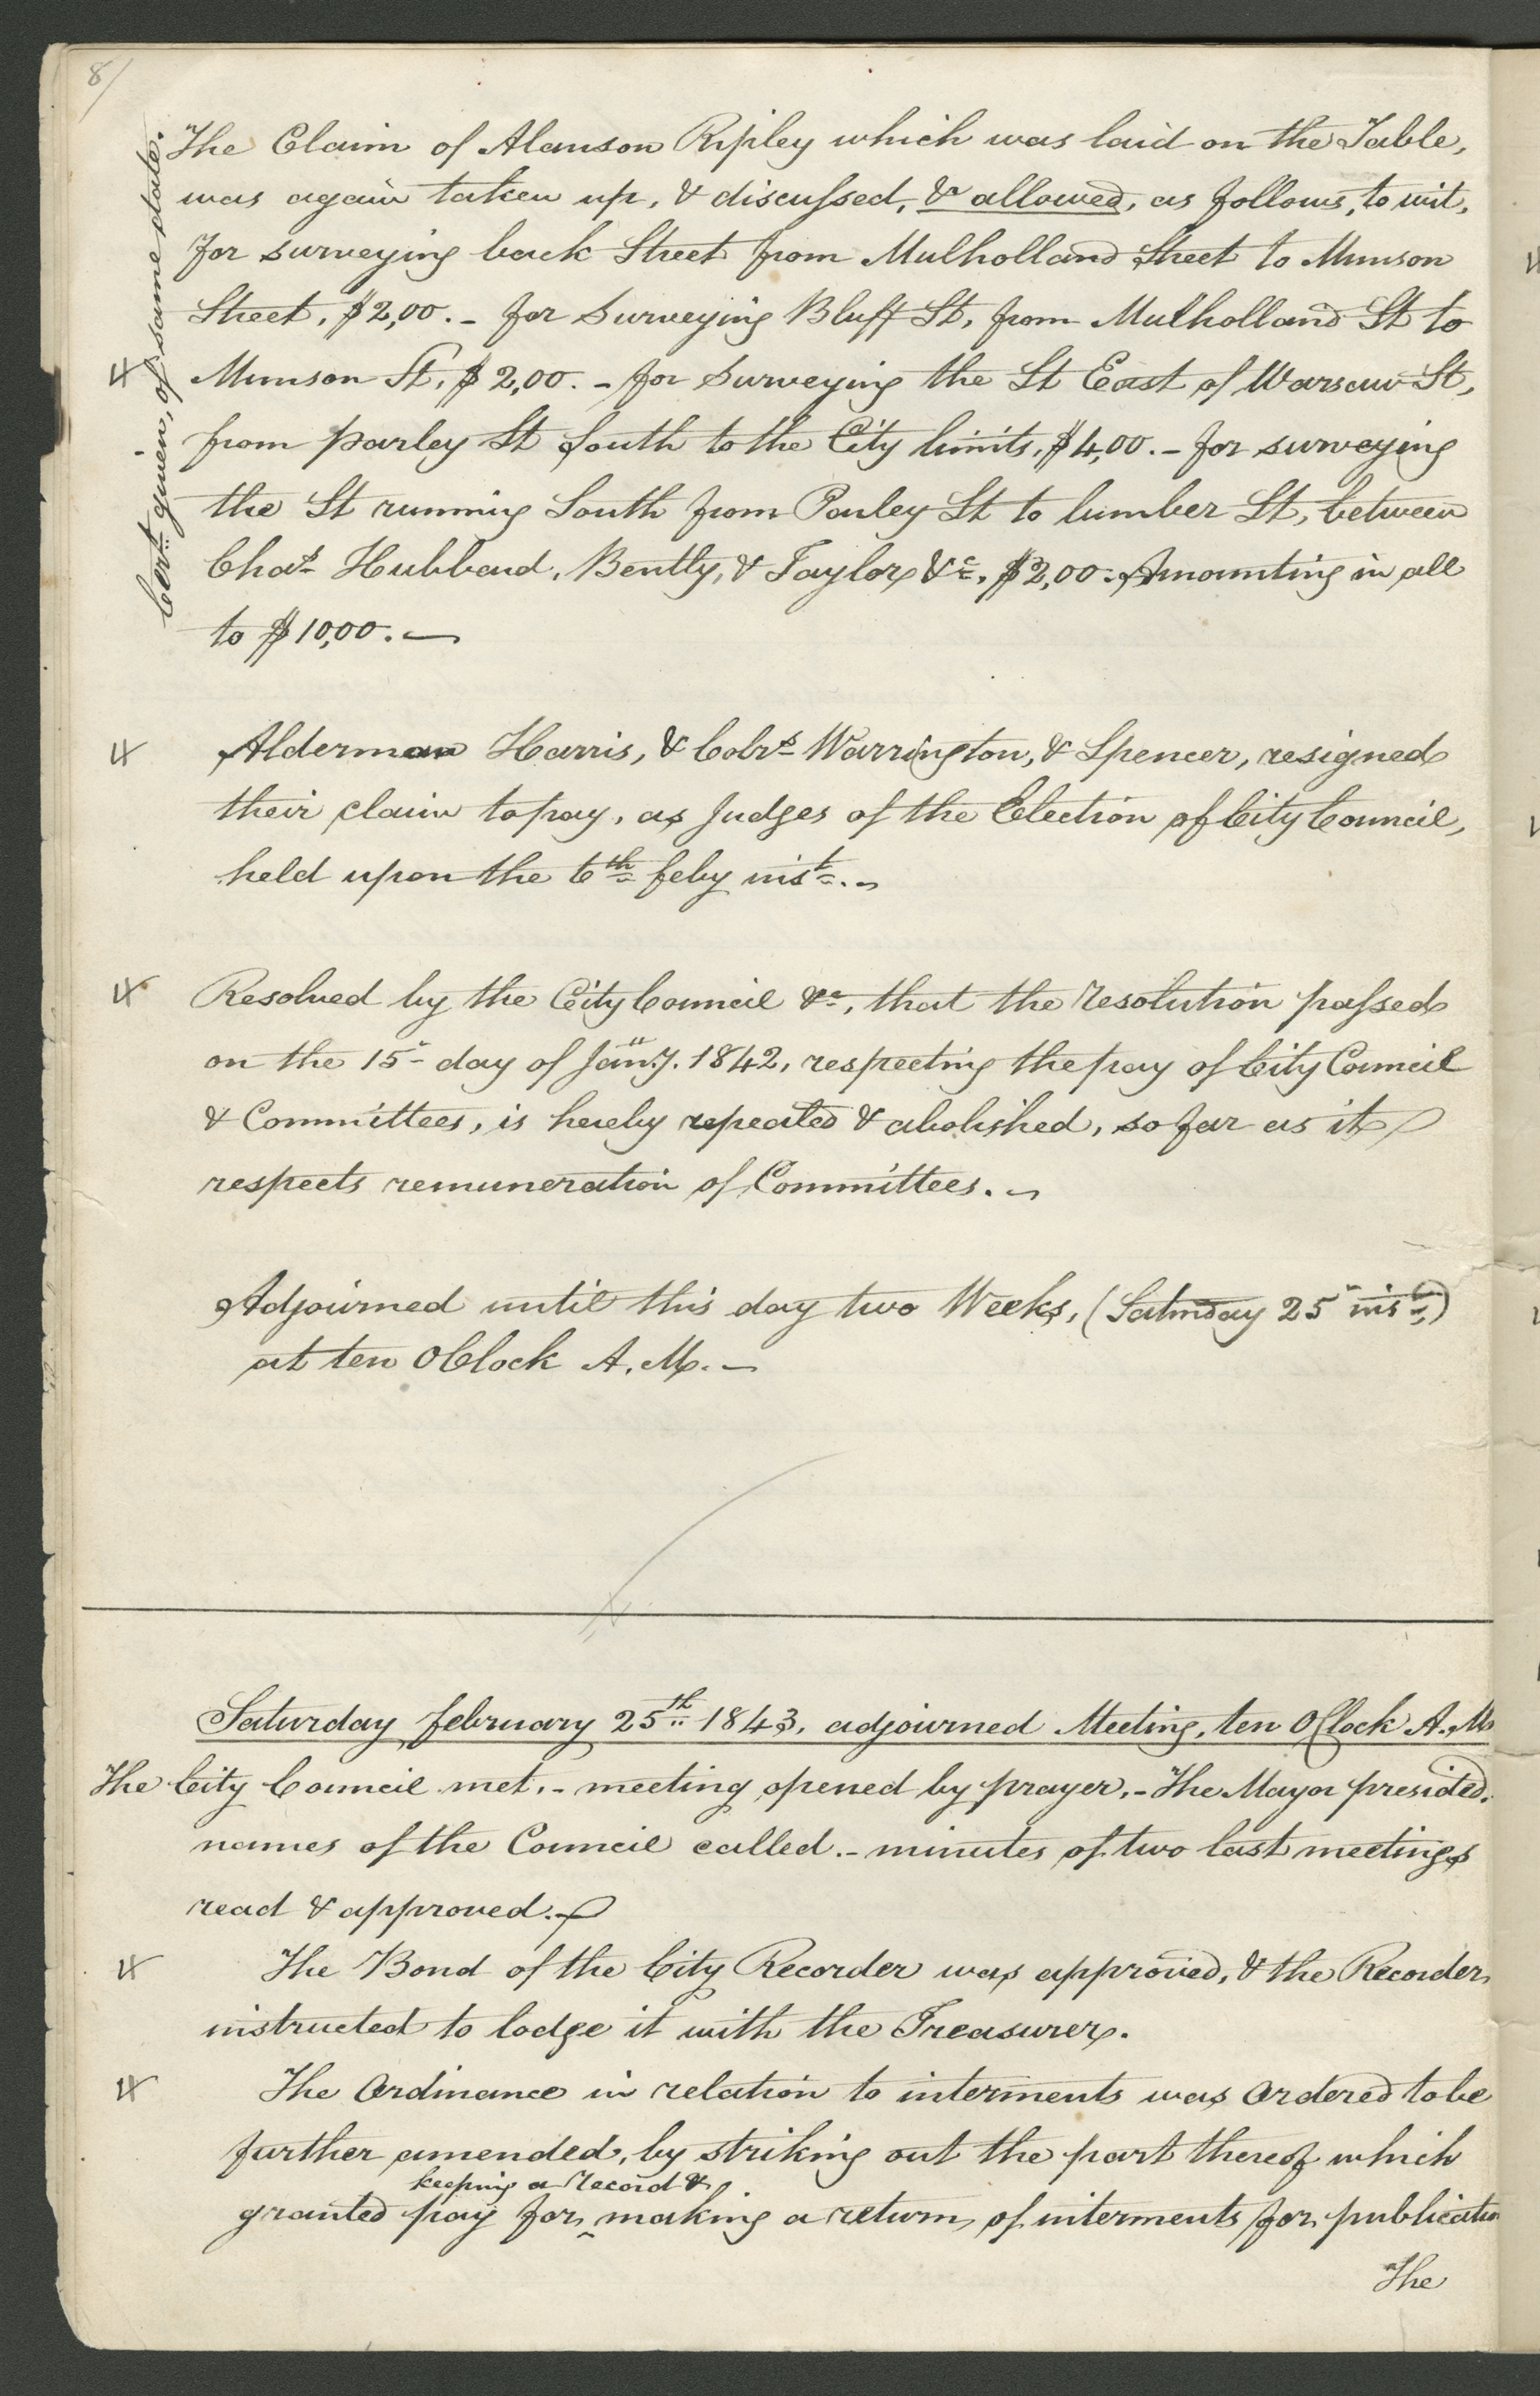 8/
The Claim of Alanson Ripley which was laid on the Table,
was again taken up, & discussed, & allowed, as follows, to wit,
for surveying back Street from Mulholland Street to Munson
Street, $2,00. – for Surveying Bluff St, from Mulholland St to
Munson St, $2,00. – for Surveying the St East of Warsaw St,
from parley St South to the City limits, $4,00. – for surveying
the St running South from Parley St to lumber St, between
Chas Hubbard, Bently, & Taylor, &c, $2,00. Amounting in all
to $10,00. —
Cert given, of same date.
Alderman Harris, & Colrs Warrington, & Spencer, resigned
their claim to pay, as Judges of the Election of City Council,
held upon the 6th feby inst. –
Resolved by the City Council &c, that the resolution passed
on the 15" day of Jany. 1842, respecting the pay of City Council
& Committees, is hereby repealed & abolished, so far as it
respects remuneration of Committees. –
Adjourned until this day two Weeks, (Saturday 25" inst,)
at ten OClock A.M. –
Saturday february 25th 1843, adjourned Meeting, ten OClock A.M
The City Council met, – meeting opened by prayer, – The Mayor presided.
names of the Council called. – minutes of two last meetings
read & approved. –
The Bond of the City Recorder was approved, & the Recorder
instructed to lodge it with the Treasurer.
The Ordinance in relation to interments was Ordered to be
further amended, by striking out the part thereof which
keeping a record &
granted pay for ^ making a return of interments for publication
The